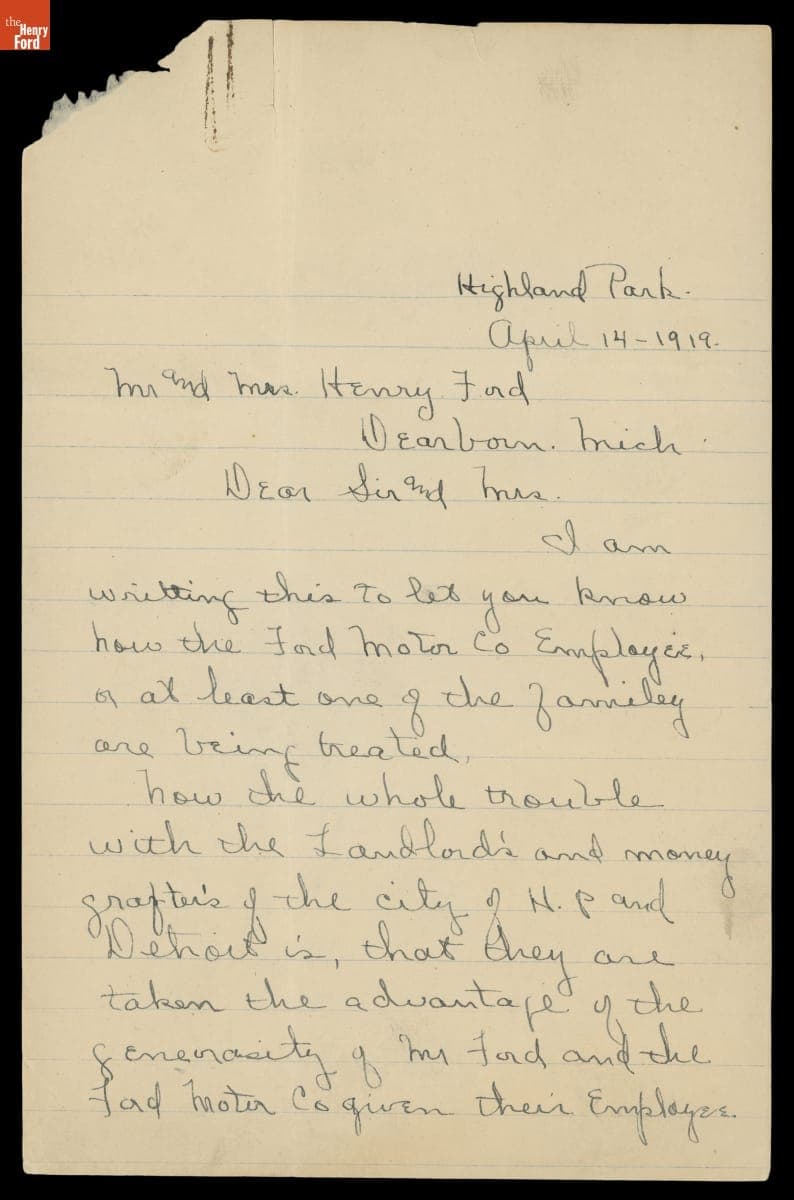 the
Henry
Ford
Highland Park.
April 14-1919.
Mr and Mrs. Henry Ford
Dearborn. Mich.
Dear Sir and Mrs.
I am
writting this to let you know
how the Ford Motor Co Employee,
or at least one of the familey
are being treated,
now the whole trouble
with the Landlord's and money
grafter's of the city of H. P and
Detroit is, that they are
taken the advantage of the
generosity of Mr Ford and the
Ford Motor Co given their Employee.